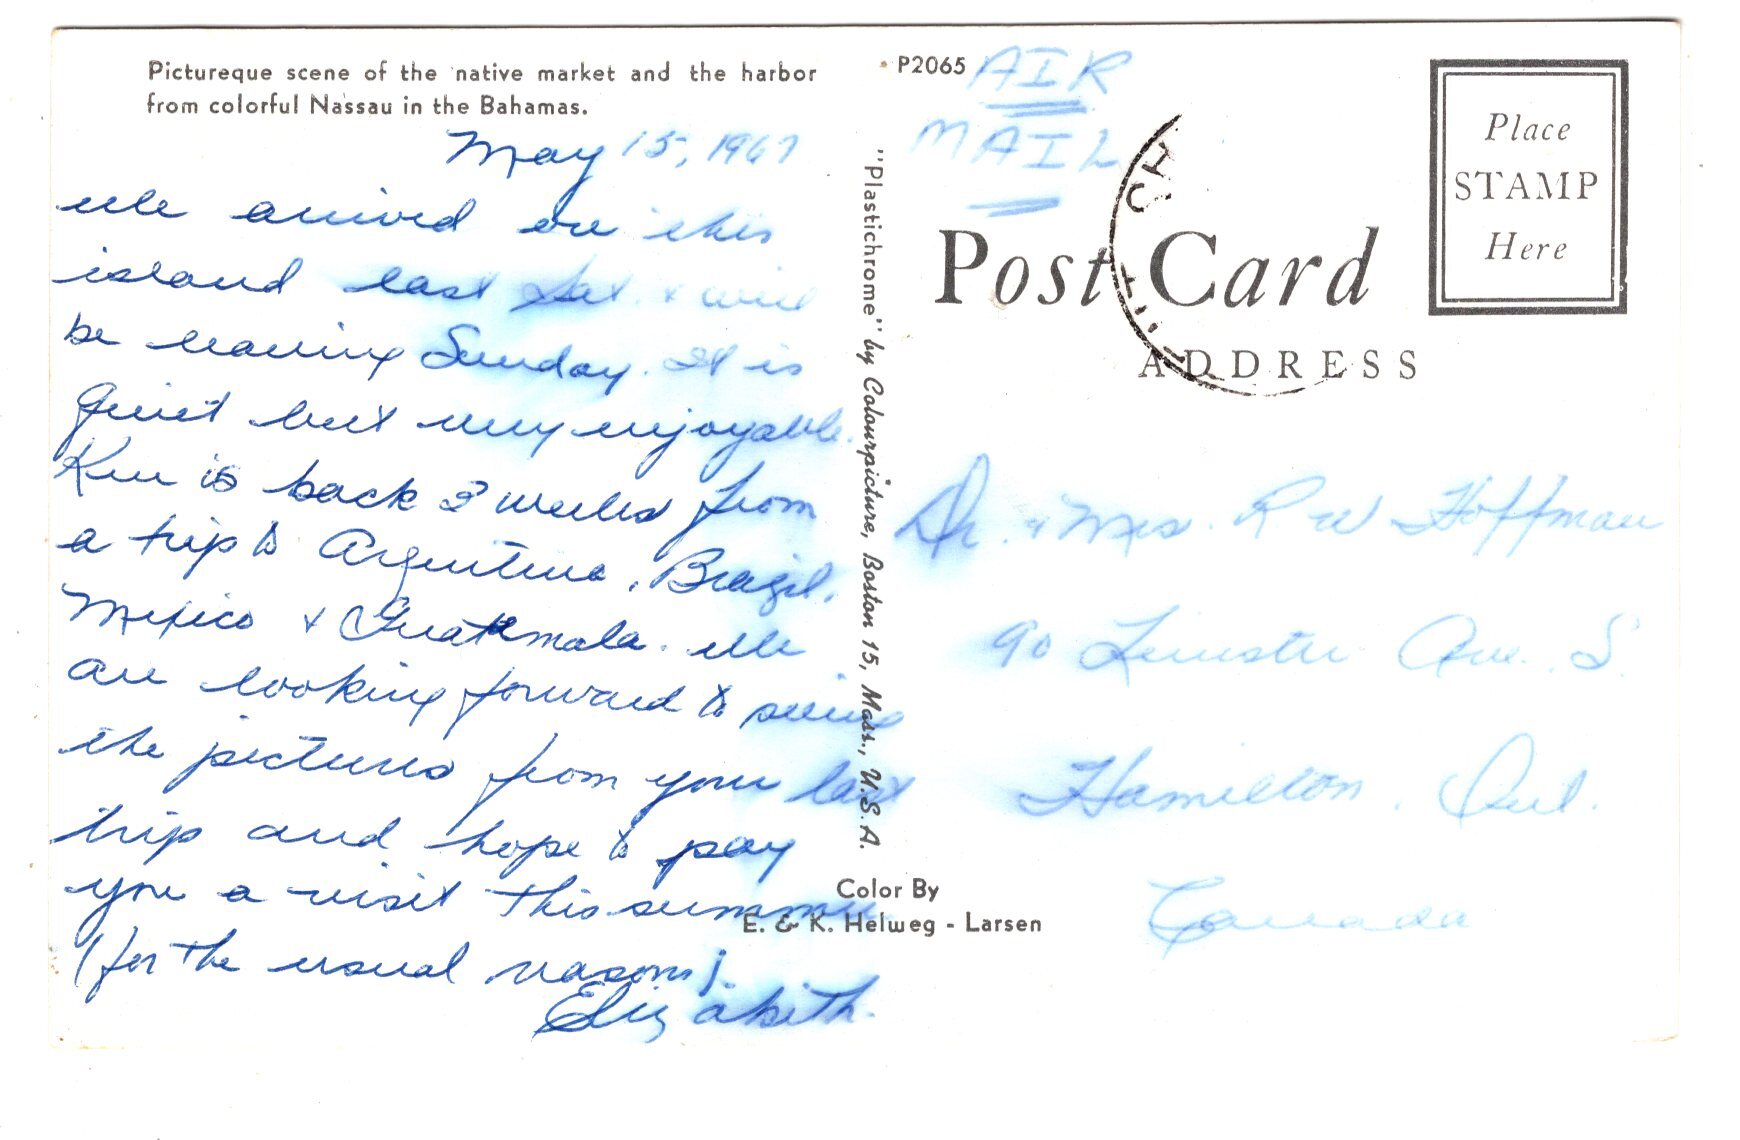 Pictureque scene of the native market and the harbor
from colorful Nassau in the Bahamas.
May 15, 1967
We arrived on this
island last Sat. & will
be leaving Sunday. It is
quiet but very enjoyable.
Ken is back 2 weeks from
a trip to Argentina, Brazil,
Mexico & Guatemala. We
are looking forward to seeing
the pictures from your last
trip and hope to pay
you a visit this summer
(for the usual reasons).
Elizabeth.
"Plastichrome" by Colourpicture, Boston 15, Mass., U.S.A.
Color By
E. & K. Helweg - Larsen
P2065
AIR
MAIL
CH
Post Card
ADDRESS
Place
STAMP
Here
Dr. & Mrs. R W Hoffman
90 Leinster Ave. S.
Hamilton, Ont.
Canada